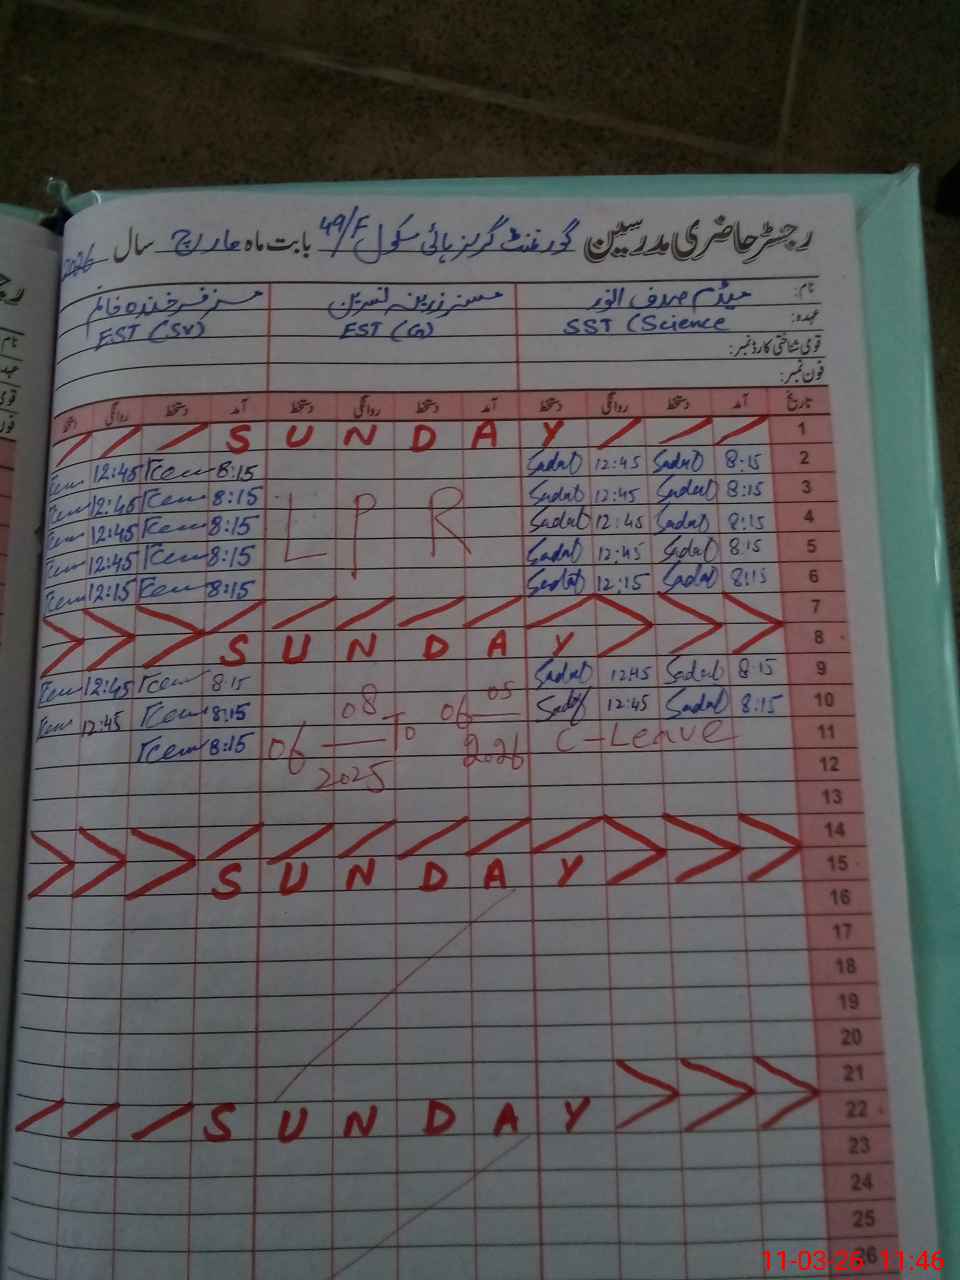 رجسٹر حاضری مدرسین گورنمنٹ گرلز ہائی سکول 49/F بابت ماہ مارچ سال 2026
نام: میڈم صدف انور مسز زرینہ نسرین مسز فرخندہ خانم
عہدہ: SST (Science EST (G) EST (SV)
قومی شناختی کارڈ نمبر:
فون نمبر:
تاریخ آمد دستخط روانگی دستخط آمد دستخط روانگی دستخط آمد دستخط روانگی دستخط
S U N D A Y 1
12:45 8:15 Sadaf 12:45 Sadaf 8:15 2
12:45 8:15 Sadaf 12:45 Sadaf 8:15 3
12:45 8:15 Sadaf 12:45 Sadaf 8:15 4
L P R
12:45 8:15 Sadaf 12:45 Sadaf 8:15 5
12:15 8:15 Sadaf 12:15 Sadaf 8:15 6
7
S U N D A Y 8
12:45 8:15 Sadaf 12:45 Sadaf 8:15 9
12:45 8:15 Sadaf 12:45 Sadaf 8:15 10
8:15 C-Leave 11
06 08 2025 To 06 05 2026
12
13
14
S U N D A Y 15
16
17
18
19
20
21
S U N D A Y 22
23
24
25
26
11-03-26 11:46